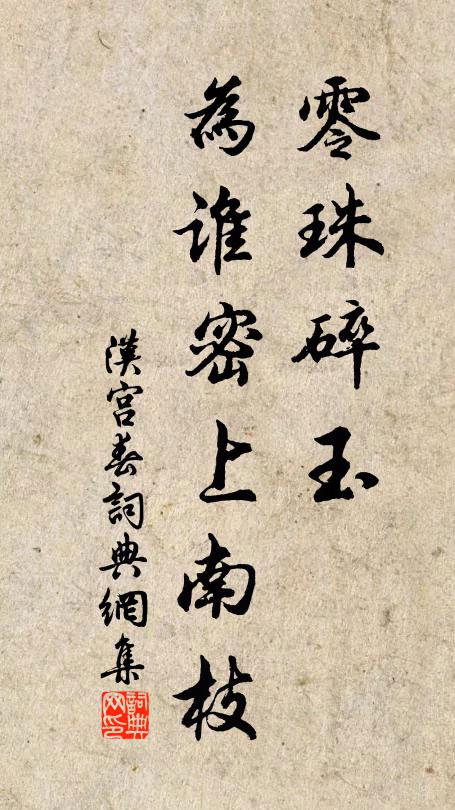 零珠碎玉
為誰密上南枝
漢宮春詞典網集
詞典网印